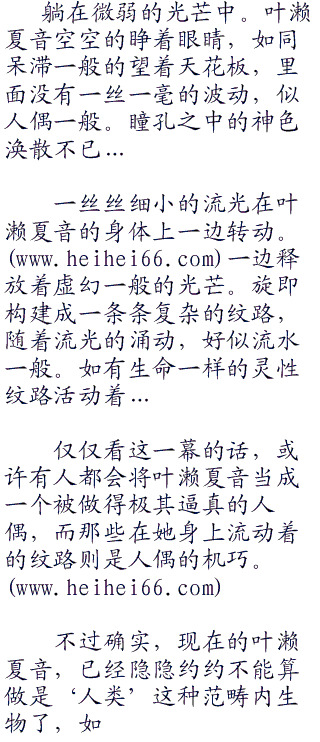 躺在微弱的光芒中。叶濑
夏音空空的睁着眼睛，如同
呆滞一般的望着天花板，里
面没有一丝一毫的波动，似
人偶一般。瞳孔之中的神色
涣散不已…
一丝丝细小的流光在叶
濑夏音的身体上一边转动。
(www.heihei66.com)一边释
放着虚幻一般的光芒。旋即
构建成一条条复杂的纹路，
随着流光的涌动，好似流水
一般。如有生命一样的灵性
纹路活动着…
仅仅看这一幕的话，或
许有人都会将叶濑夏音当成
一个被做得极其逼真的人
偶，而那些在她身上流动着
的纹路则是人偶的机巧。
(www.heihei66.com)
不过确实，现在的叶濑
夏音，已经隐隐约约不能算
做是‘人类’这种范畴内生
物了，如